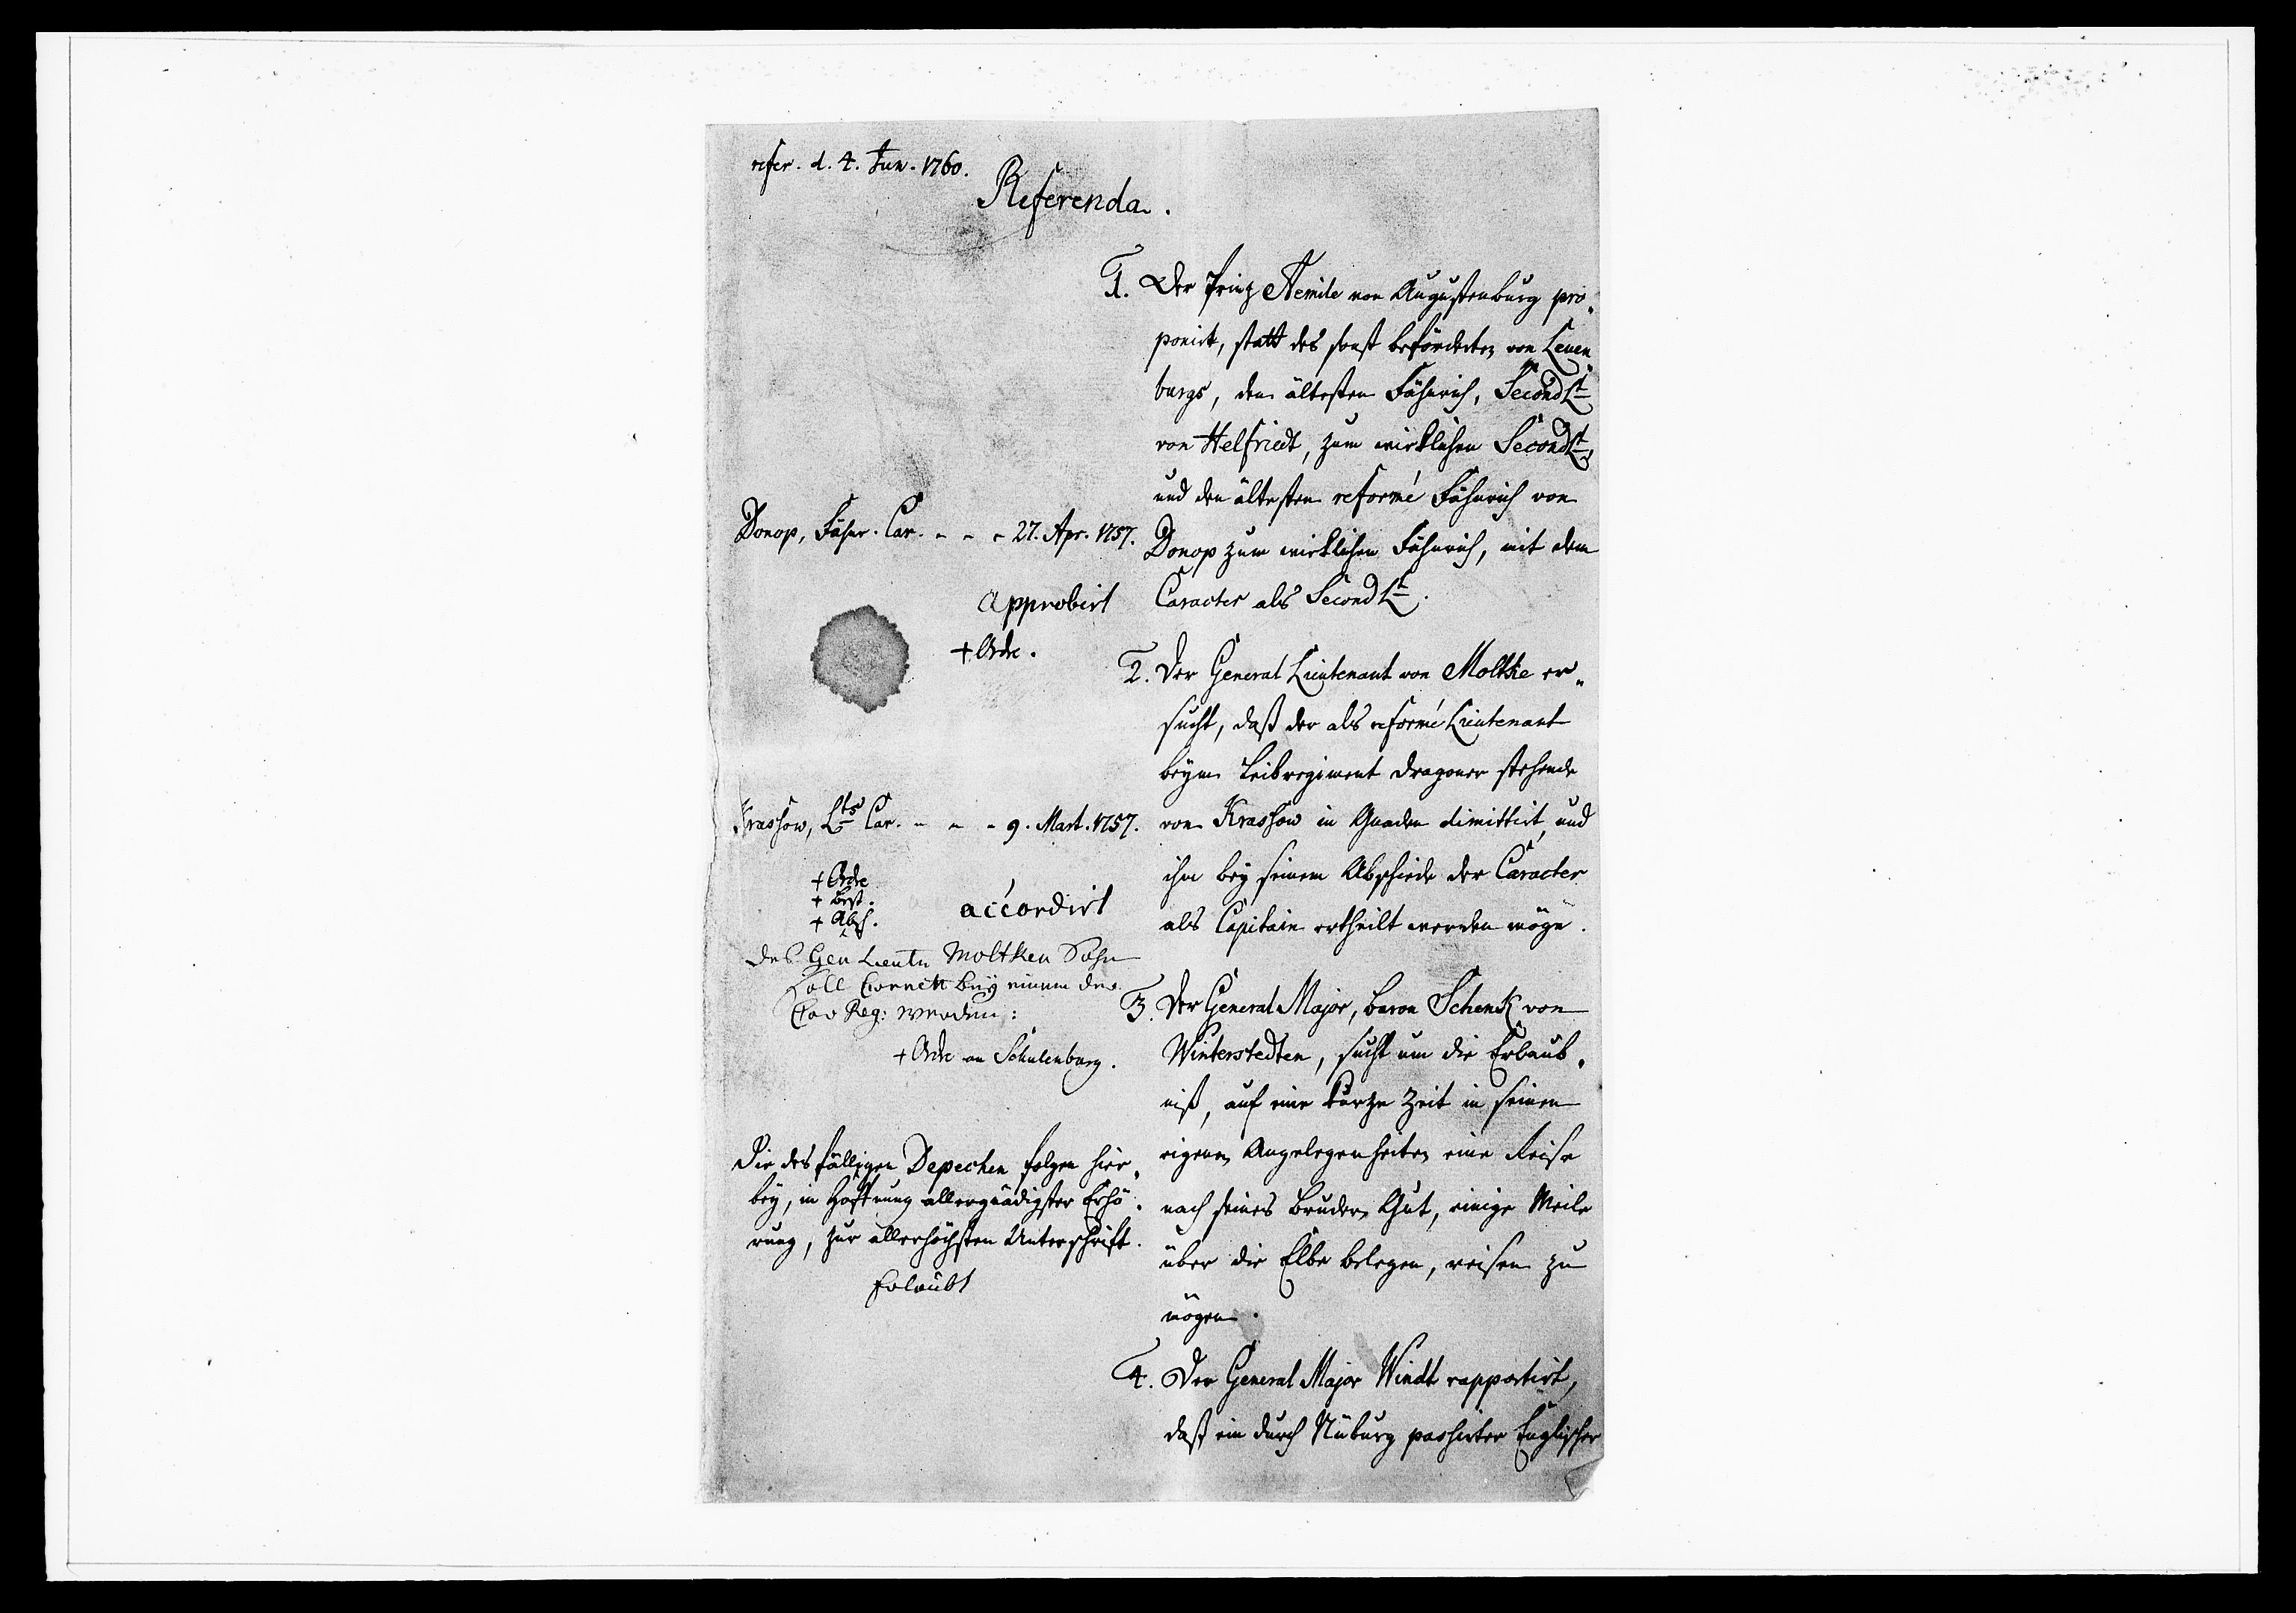 refer. d. 4. Jun. 1760.
Referenda.
1. Der Prinz Aemile von Augustenburg pro-
ponirt, statt des sonst beförderten von Leuen-
burgs, den ältesten Fähnrich, Second Lt
von Helfriedt, zum wirklichen Second Lt,
und den ältesten reformé Fähnrich von
Donop zum wirklichen Fähnrich, mit dem
Caracter als Second Lt.
Donop, Fähnr. Car. - - - 27. Apr. 1757.
approbirt
+ Ordre.
2. Der General Lieutenant von Moltke er-
sucht, daß der als reformé Lieutenant
beym Leibregiment Dragoner stehende
von Krassow in Gnaden dimittirt, und
ihm bey seinem Abschiede der Caracter
als Capitain ertheilt werden möge.
Krassow, Lts Car. - - - 9. Mart. 1757.
+ Ordre
+ Best.
+ Absch.
accordirt
des Gen Lieutn Moltken Sohn
soll Cornett bey einem der
Cav Reg: werden:
+ Ordre an Schulenburg.
3. Der General Major, Baron Schenk von
Winterstedten, sucht um die Erlaub-
niß, auf eine kurze Zeit in seinen
eigenen Angelegenheiten eine Reise
nach seines Bruders Gut, einige Meile
über die Elbe belegen, reisen zu
mögen.
Die desfälligen Depechen folgen hier-
bey, in Hoffnung allergnädigster Erhö-
rung, zur allerhöchsten Unterschrift.
Erlaubt
4. Der General Major Windt rapportirt,
daß ein durch Nüburg passirter Englischer